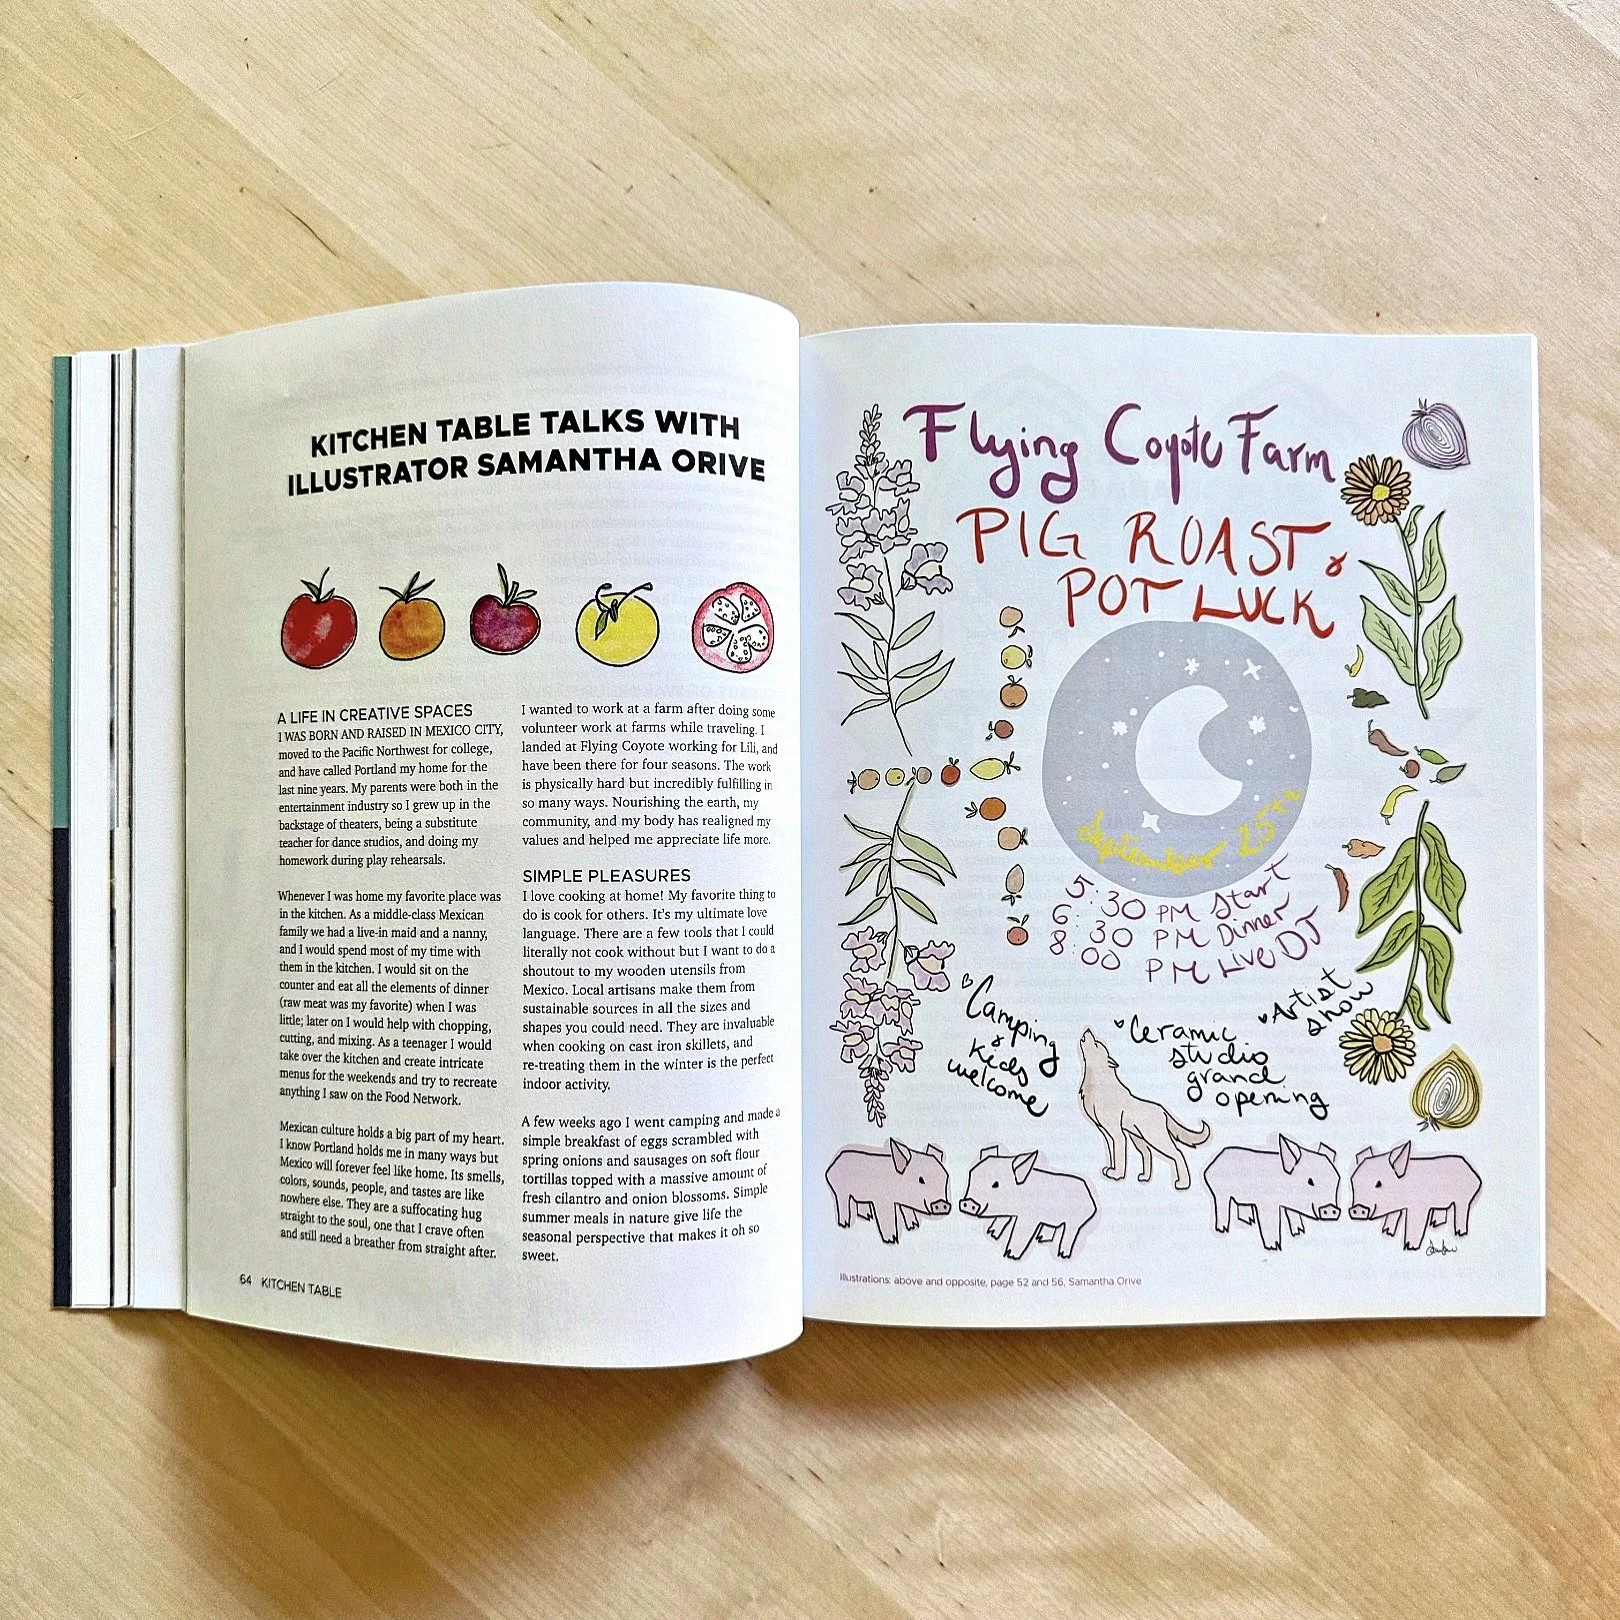 KITCHEN TABLE TALKS WITH
ILLUSTRATOR SAMANTHA ORIVE
A LIFE IN CREATIVE SPACES
I WAS BORN AND RAISED IN MEXICO CITY,
moved to the Pacific Northwest for college,
and have called Portland my home for the
last nine years. My parents were both in the
entertainment industry so I grew up in the
backstage of theaters, being a substitute
teacher for dance studios, and doing my
homework during play rehearsals.
Whenever I was home my favorite place was
in the kitchen. As a middle-class Mexican
family we had a live-in maid and a nanny,
and I would spend most of my time with
them in the kitchen. I would sit on the
counter and eat all the elements of dinner
(raw meat was my favorite) when I was
little; later on I would help with chopping,
cutting, and mixing. As a teenager I would
take over the kitchen and create intricate
menus for the weekends and try to recreate
anything I saw on the Food Network.
Mexican culture holds a big part of my heart.
I know Portland holds me in many ways but
Mexico will forever feel like home. Its smells,
colors, sounds, people, and tastes are like
nowhere else. They are a suffocating hug
straight to the soul, one that I crave often
and still need a breather from straight after.
I wanted to work at a farm after doing some
volunteer work at farms while traveling. I
landed at Flying Coyote working for Lili, and
have been there for four seasons. The work
is physically hard but incredibly fulfilling in
so many ways. Nourishing the earth, my
community, and my body has realigned my
values and helped me appreciate life more.
SIMPLE PLEASURES
I love cooking at home! My favorite thing to
do is cook for others. It's my ultimate love
language. There are a few tools that I could
literally not cook without but I want to do a
shoutout to my wooden utensils from
Mexico. Local artisans make them from
sustainable sources in all the sizes and
shapes you could need. They are invaluable
when cooking on cast iron skillets, and
re-treating them in the winter is the perfect
indoor activity.
A few weeks ago I went camping and made a
simple breakfast of eggs scrambled with
spring onions and sausages on soft flour
tortillas topped with a massive amount of
fresh cilantro and onion blossoms. Simple
summer meals in nature give life the
seasonal perspective that makes it oh so
sweet.
64 KITCHEN TABLE
Flying Coyote Farm
PIG ROAST &
POT LUCK
September 25th
5:30 PM Start
6:30 PM Dinner
8:00 PM Live DJ
Camping
&
Kids
welcome
Ceramic
studio
grand
opening
Artist
show
Illustrations: above and opposite, page 52 and 56, Samantha Orive